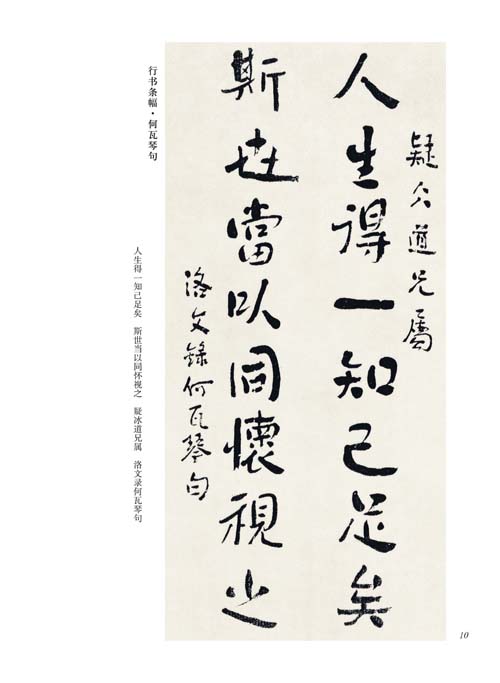 疑仌道兄屬
人生得一知己足矣
斯世當以同懷視之
洛文錄何瓦琴句
行书条幅·何瓦琴句
人生得一知己足矣 斯世当以同怀视之 疑冰道兄属 洛文录何瓦琴句
10